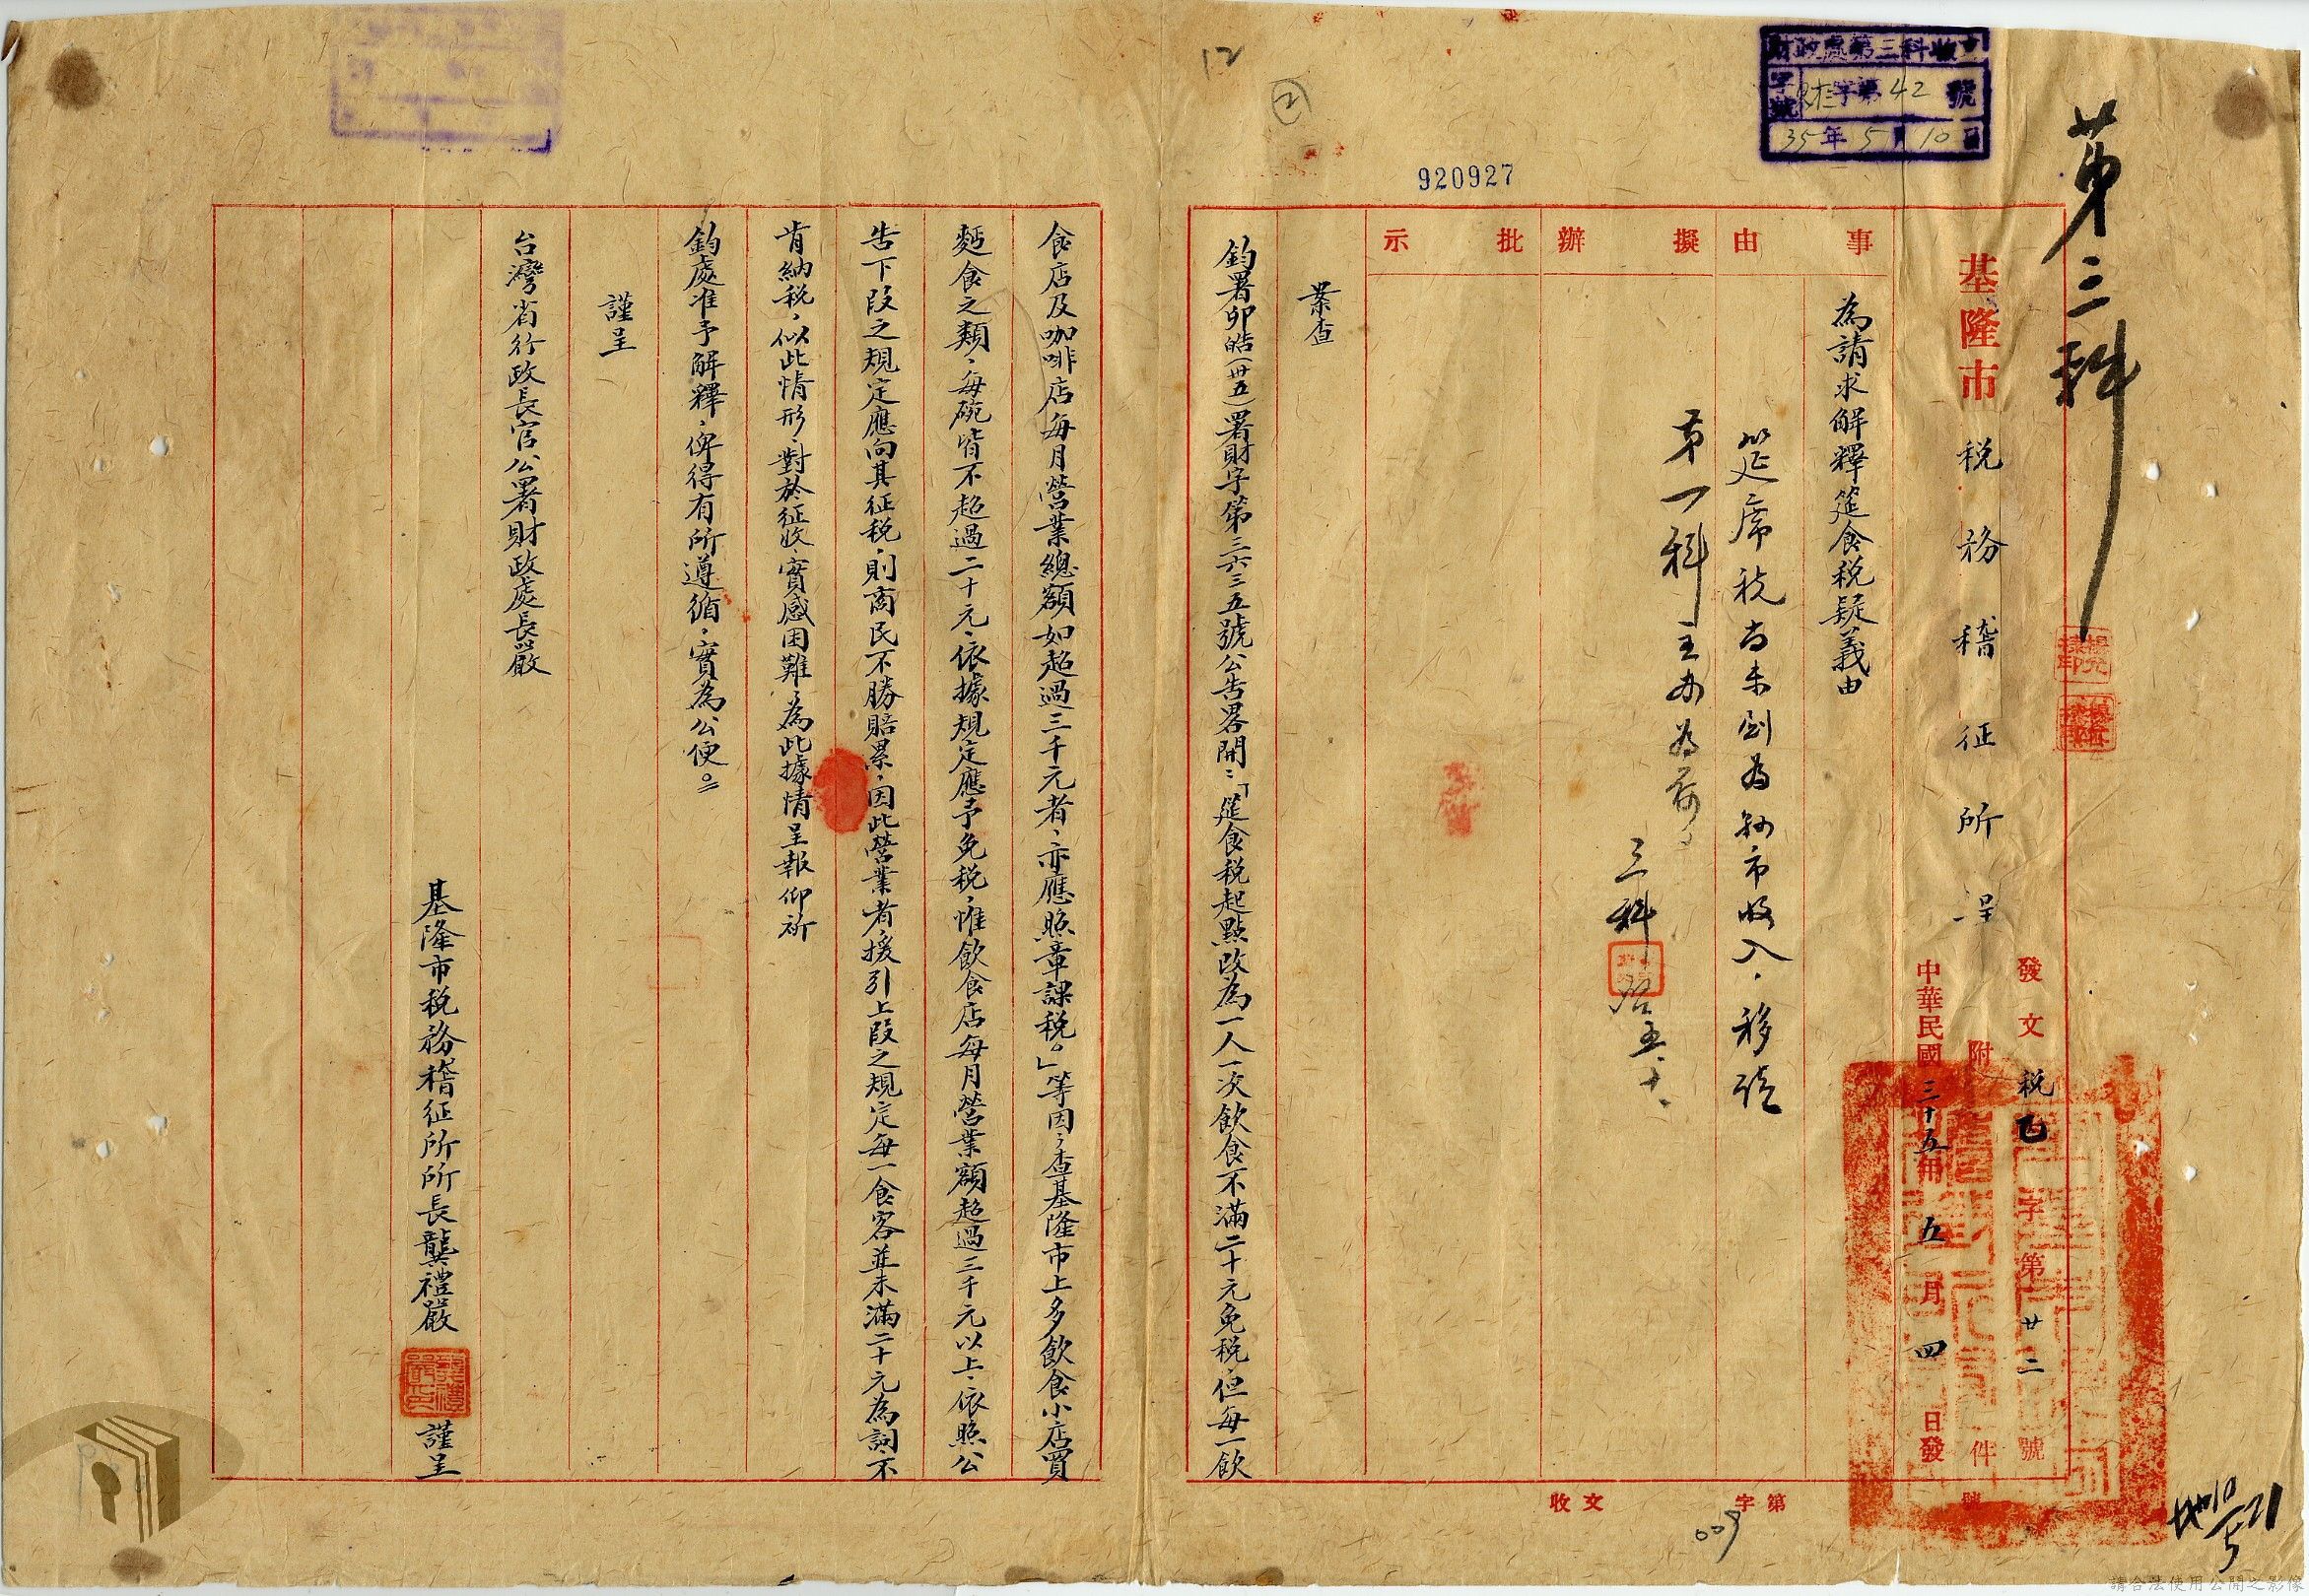 第三科
財政處第三科收文
字號 財字第42號
35年5月10日
基隆市稅務稽征所呈
發文稅乙字第廿二號
附件
中華民國三十五年五月四日發
事由
為請求解釋筵食稅疑義由
擬辦
批示
筵席稅尚未劃為縣市收入，移請
第一科主办為荷。
三科
五、十、
920927
12
2
案查
鈞署卯皓(卅五)署財字第三六三五號公告畧開：「筵食稅起點改為一人一次飲食不滿二十元免稅，但每一飲
食店及咖啡店每月營業總額如超過三千元者，亦應照章課稅。」等因，查基隆市上多飲食小店買
麪食之類，每碗皆不超過二十元，依據規定應予免稅，惟飲食店每月營業額超過三千元以上，依照公
告下段之規定應向其征稅，則商民不勝賠累，因此營業者，援引上段之規定每一食客並未滿二十元為詞，不
肯納稅，似此情形，對於征收，實感困難，為此據情呈報仰祈
鈞處准予解釋，俾得有所遵循，實為公便。
謹呈
台灣省行政長官公署財政處長嚴
基隆市稅務稽征所所長龔禮嚴 謹呈
收文 字第 號
009
請合法使用公開之影像